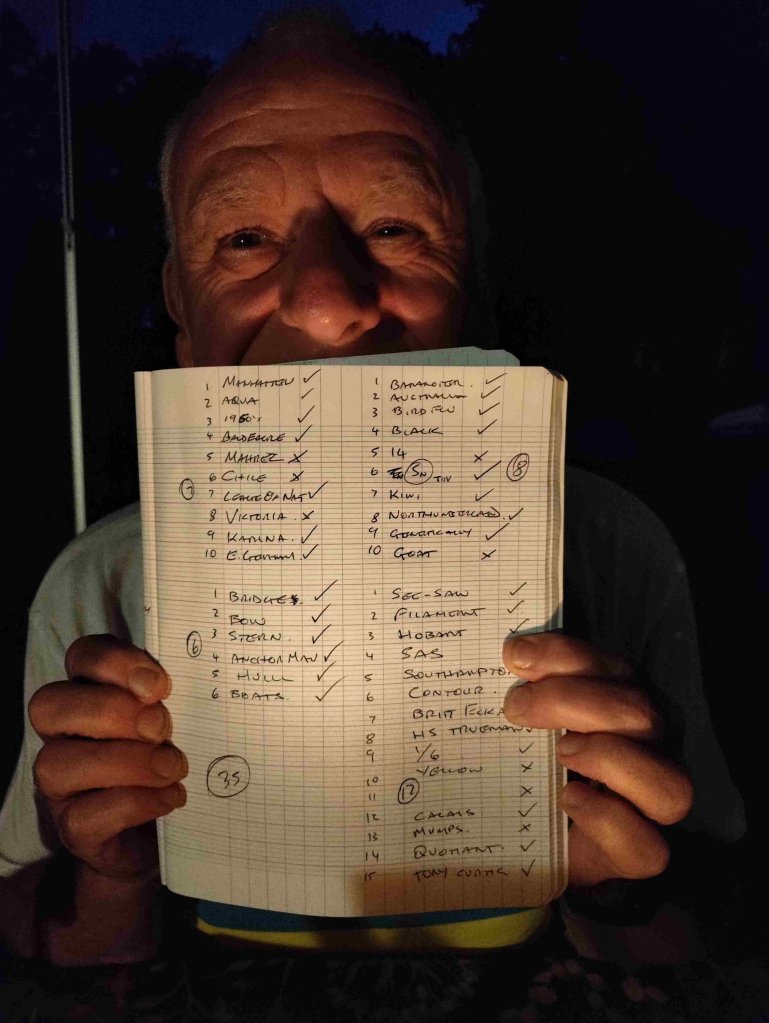 1 MANHATTEN ✓
2 AQUA ✓
3 1950's ✓
4 ✓
5 MAHREZ X
6 CHILE X
7 LEAGUE OF NAT ✓
8 VICTORIA X
9 KATRINA ✓
10 ✓
7
1 ✓
2 AUSTRALIA ✓
3 BIRD FLU ✓
4 BLACK ✓
5 14 X
6 Sn TIN ✓
7 KIWI ✓
8 ✓
9 GENETICALLY ✓
10 GOAT X
8
1 BRIDGES. ✓
2 BOW ✓
3 STERN. ✓
4 ANCHOR MAN ✓
5 HULL ✓
6 BOATS. ✓
6
35
1 SEE-SAW ✓
2 FILAMENT ✓
3 HOBART ✓
4 SAS
5 SOUTHAMPTO
6 CONTOUR.
7 BRITT EKLA
8 HS TRUEMAN ✓
9 1/6 ✓
10 YELLOW X
11 X
12 CALAIS ✓
13 MUMPS. X
14 ✓
15 TONY CURTIS ✓
12